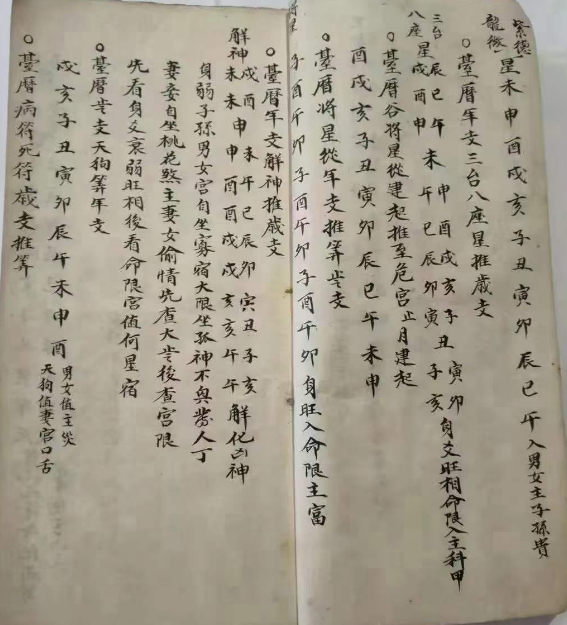 紫德
龍德
星未申酉戌亥子丑寅卯辰巳午入男女主子孫貴
○臺曆年支三台八座星推歲支
三台
八座
星
辰巳午未申酉戌亥子丑寅卯
戌酉申未午巳辰卯寅丑子亥
身爻旺相命限入主科甲
○臺曆谷將星從建起推至危宮止月建起
酉戌亥子丑寅卯辰巳午未申
○臺曆將星從年支推算歲支
將星
子酉午卯子酉午卯子酉午卯身旺入命限主富
○臺曆年支解神推歲支
解神
戌酉申未午巳辰卯寅丑子亥
未未申申酉酉戌戌亥亥午午
解化凶神
身弱子孫男女宮自坐寡宿大限坐孤神不與
人丁
妻妾自坐桃花煞主妻女偷情先查大
後查宮限
先看身爻衰弱旺相後看命限宮值何星宿
○臺曆歲支天狗算年支
戌亥子丑寅卯辰午未申酉
男女值主災
天狗值妻宮口舌
○臺曆病符死符歲支推算